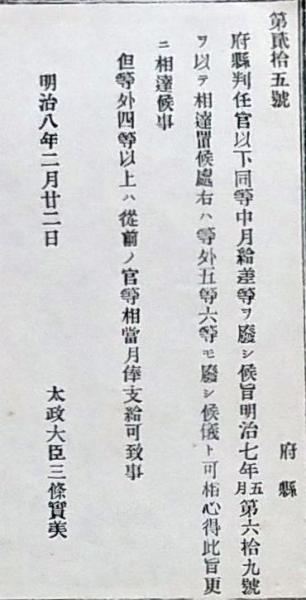 第貳拾五號
府縣
府縣判任官以下同等中月給差等ヲ廢シ候旨明治七年五月第六拾九號
ヲ以テ相達置候處右ハ等外五等六等モ廢シ候儀ト可相心得此旨更
ニ相達候事
但等外四等以上ハ從前ノ官等相當月俸支給可致事
明治八年二月廿二日
太政大臣三條實美